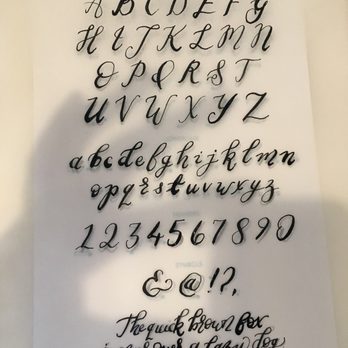 A B C D E F G
H I J K L M N
O P Q R S T
U V W X Y Z
a b c d e f g h i j k l m n
o p q r s t u v w x y z
1 2 3 4 5 6 7 8 9 0
& @ ! ? ,
The quick brown fox
a lazy dog